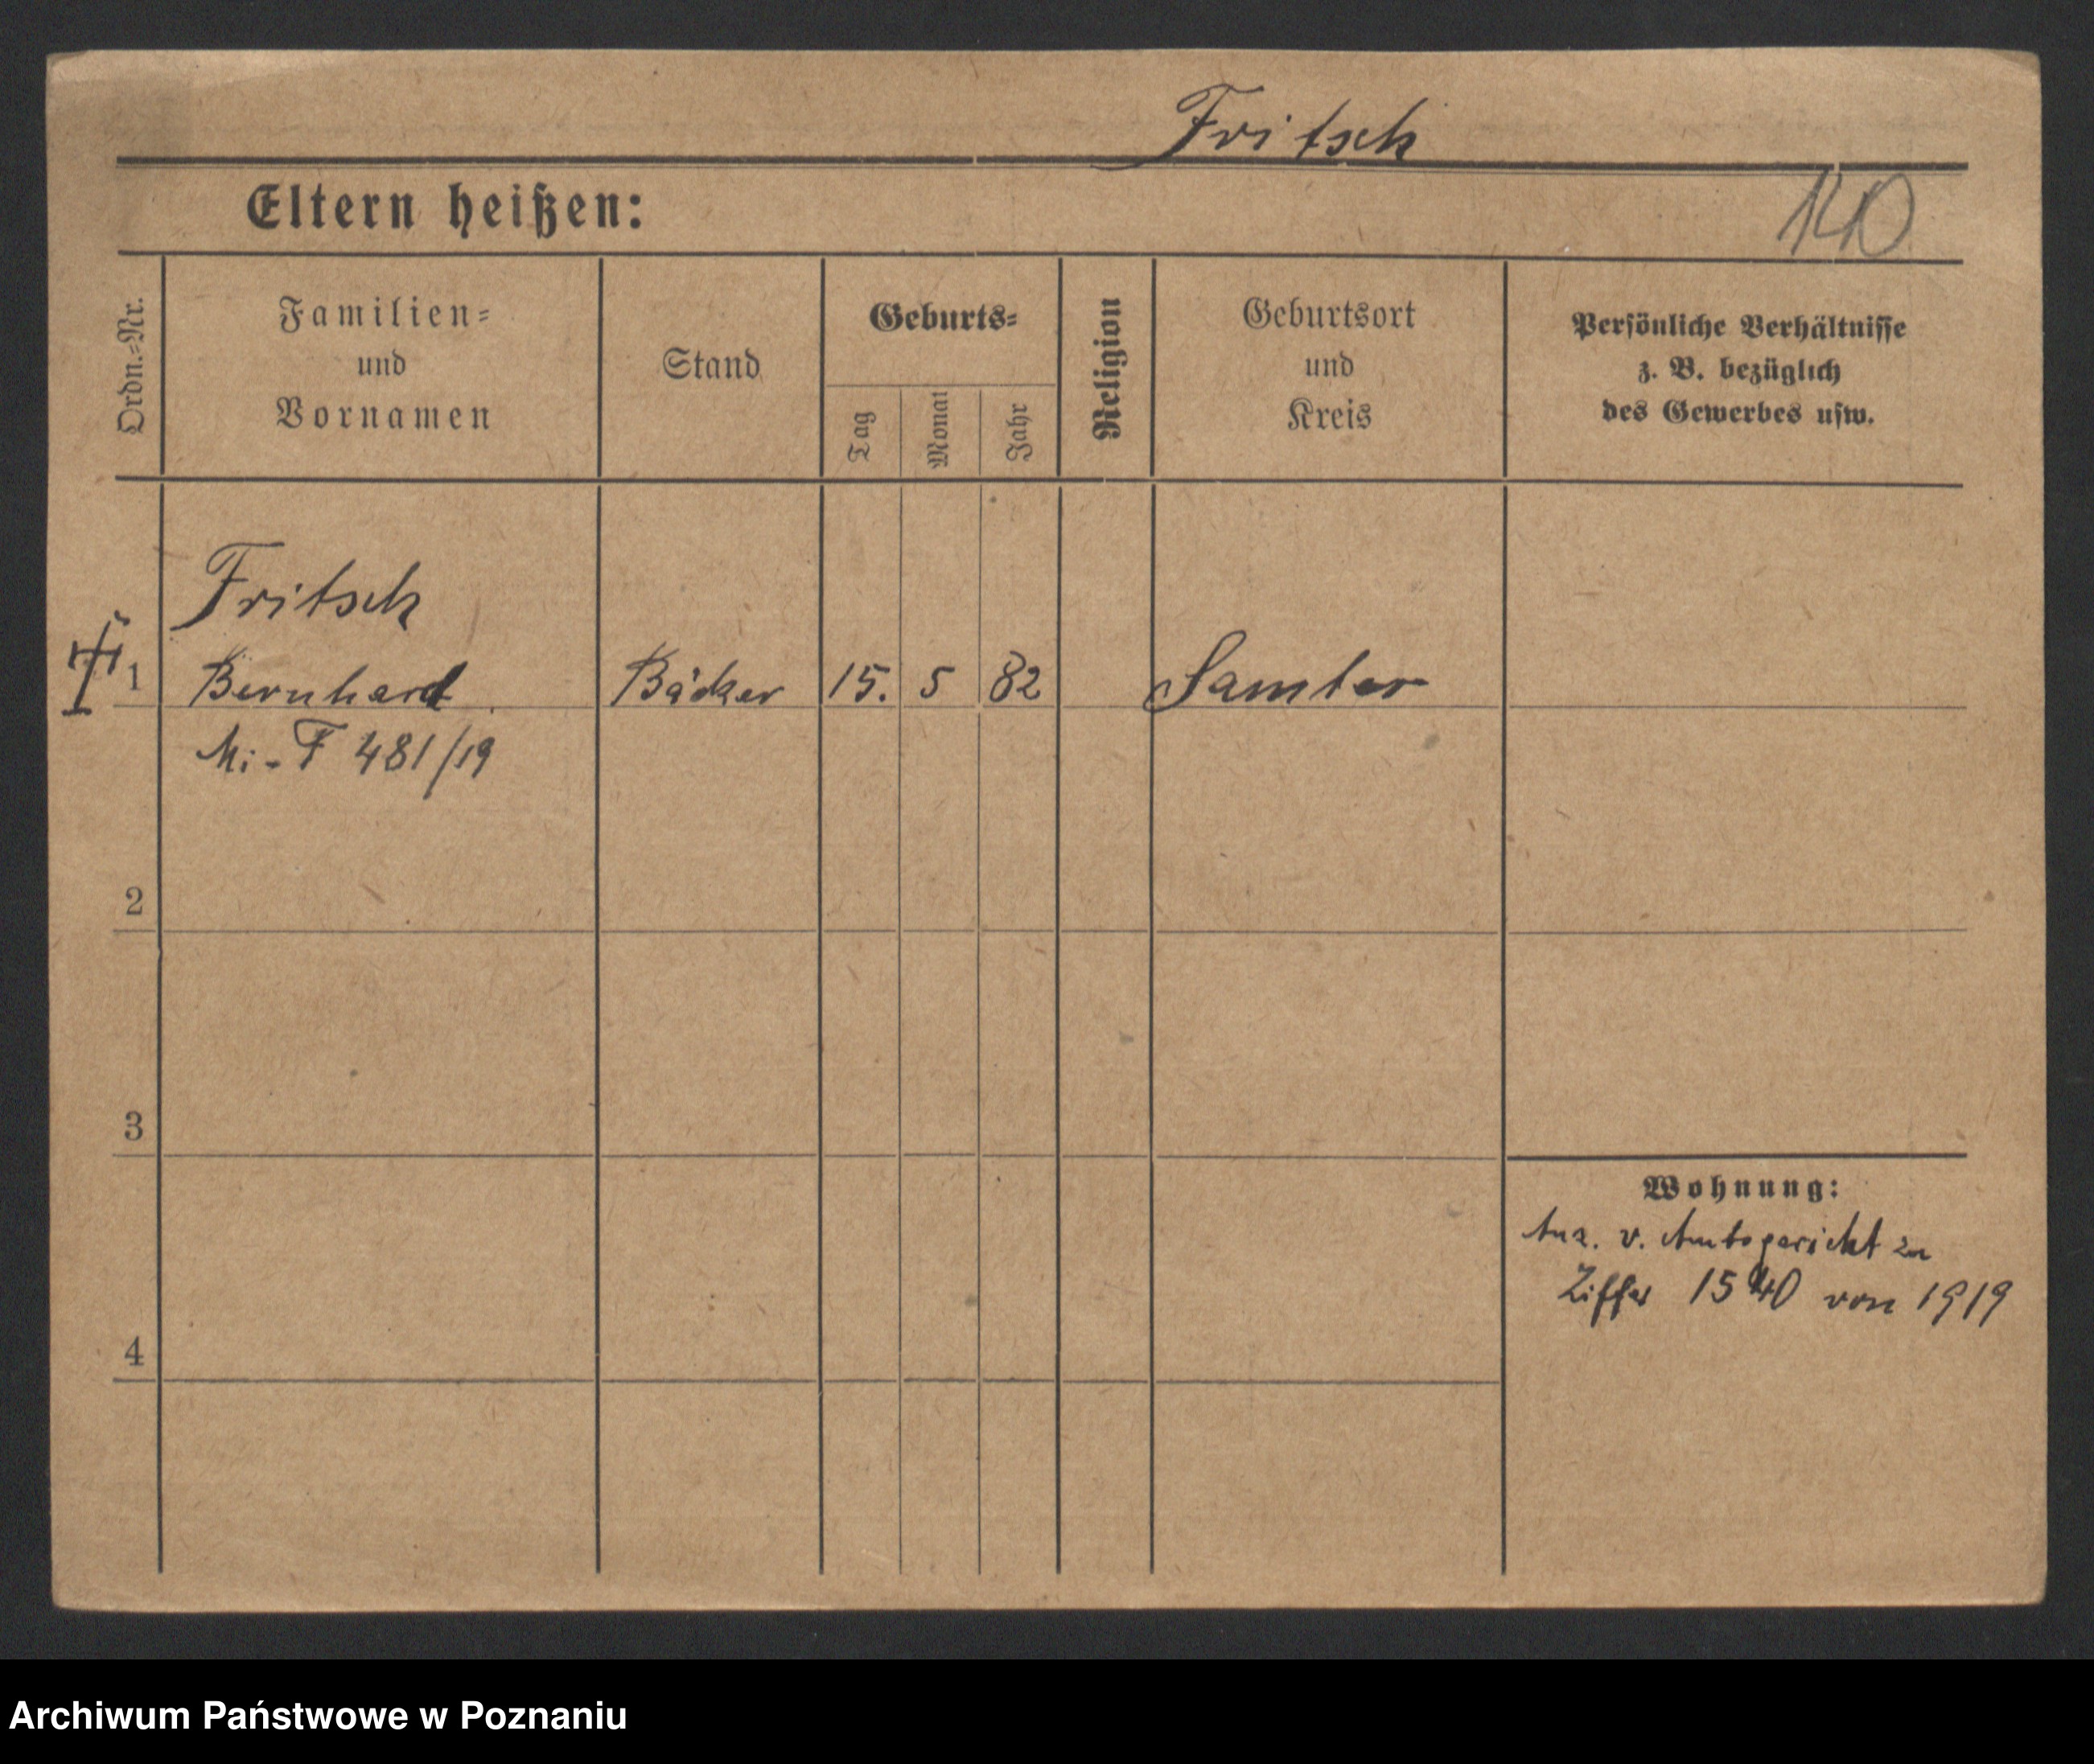 Fritsch
Eltern heißen:
140
Ordn.=Nr.
Familien=
und
Vornamen
Stand
Geburts=
Tag
Monat
Jahr
Religion
Geburtsort
und
Kreis
Persönliche Verhältnisse
z. B. bezüglich
des Gewerbes usw.
Fritsch
1 Bernhard Bäcker 15. 5 82 Samter
Mi-F 481/19
2
3
4
Wohnung:
v. Amtsgericht zu
Ziffer 1540 von 1919
Archiwum Państwowe w Poznaniu